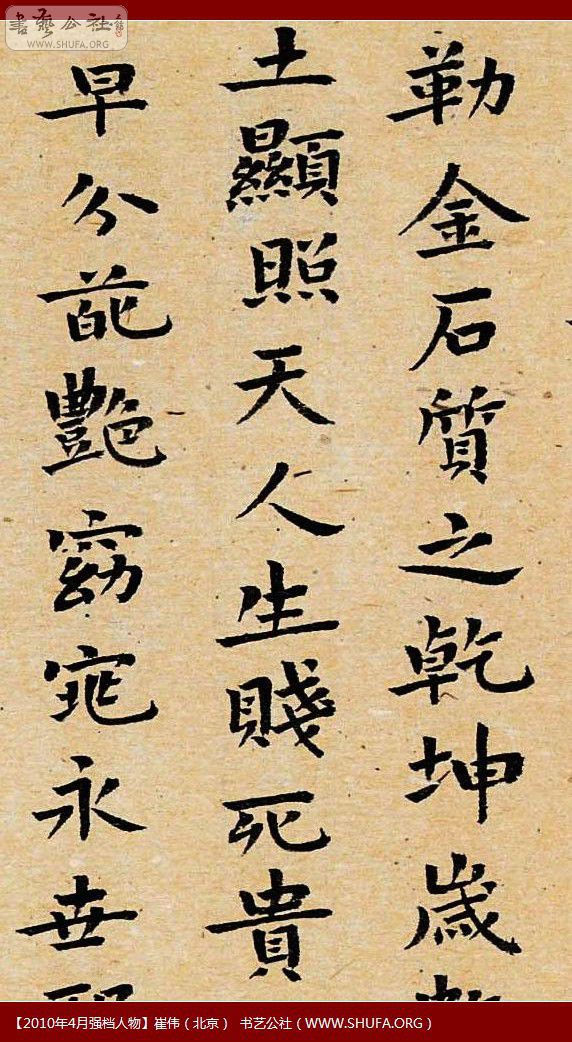 書藝公社
WWW.SHUFA.ORG
勒金石質之乾坤歲
土顯照天人生賤死貴
早分葩艷窈窕永世
【2010年4月强档人物】崔伟（北京） 书艺公社（WWW.SHUFA.ORG）